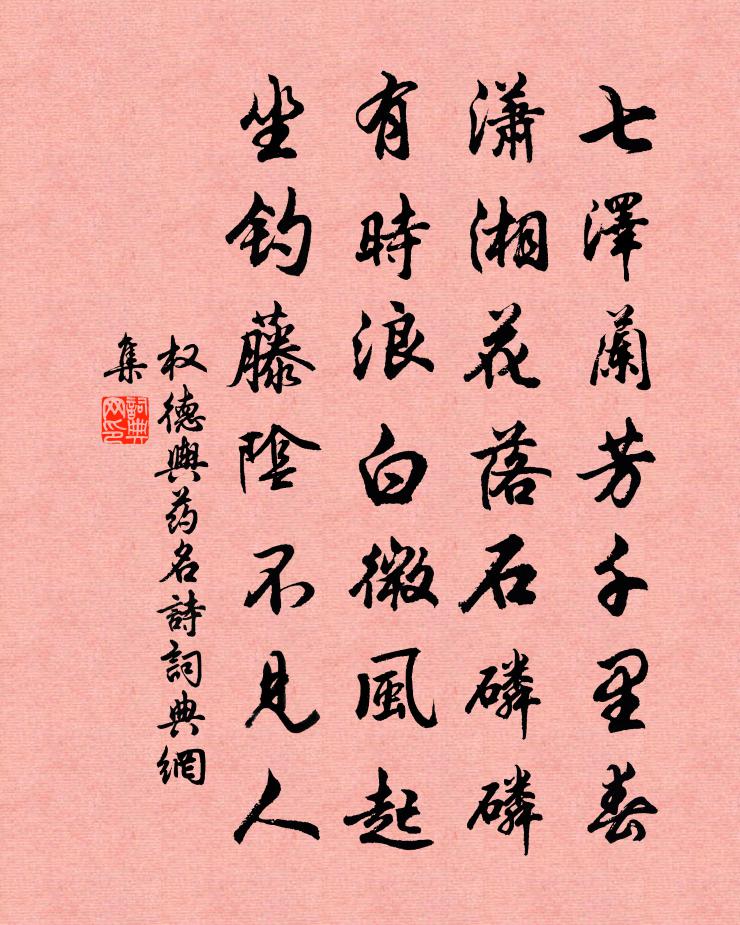 七澤蘭芳千里春
瀟湘花落石磷磷
有時浪白微風起
坐釣藤陰不見人
权德輿药名詩詞典網
集
詞典網印